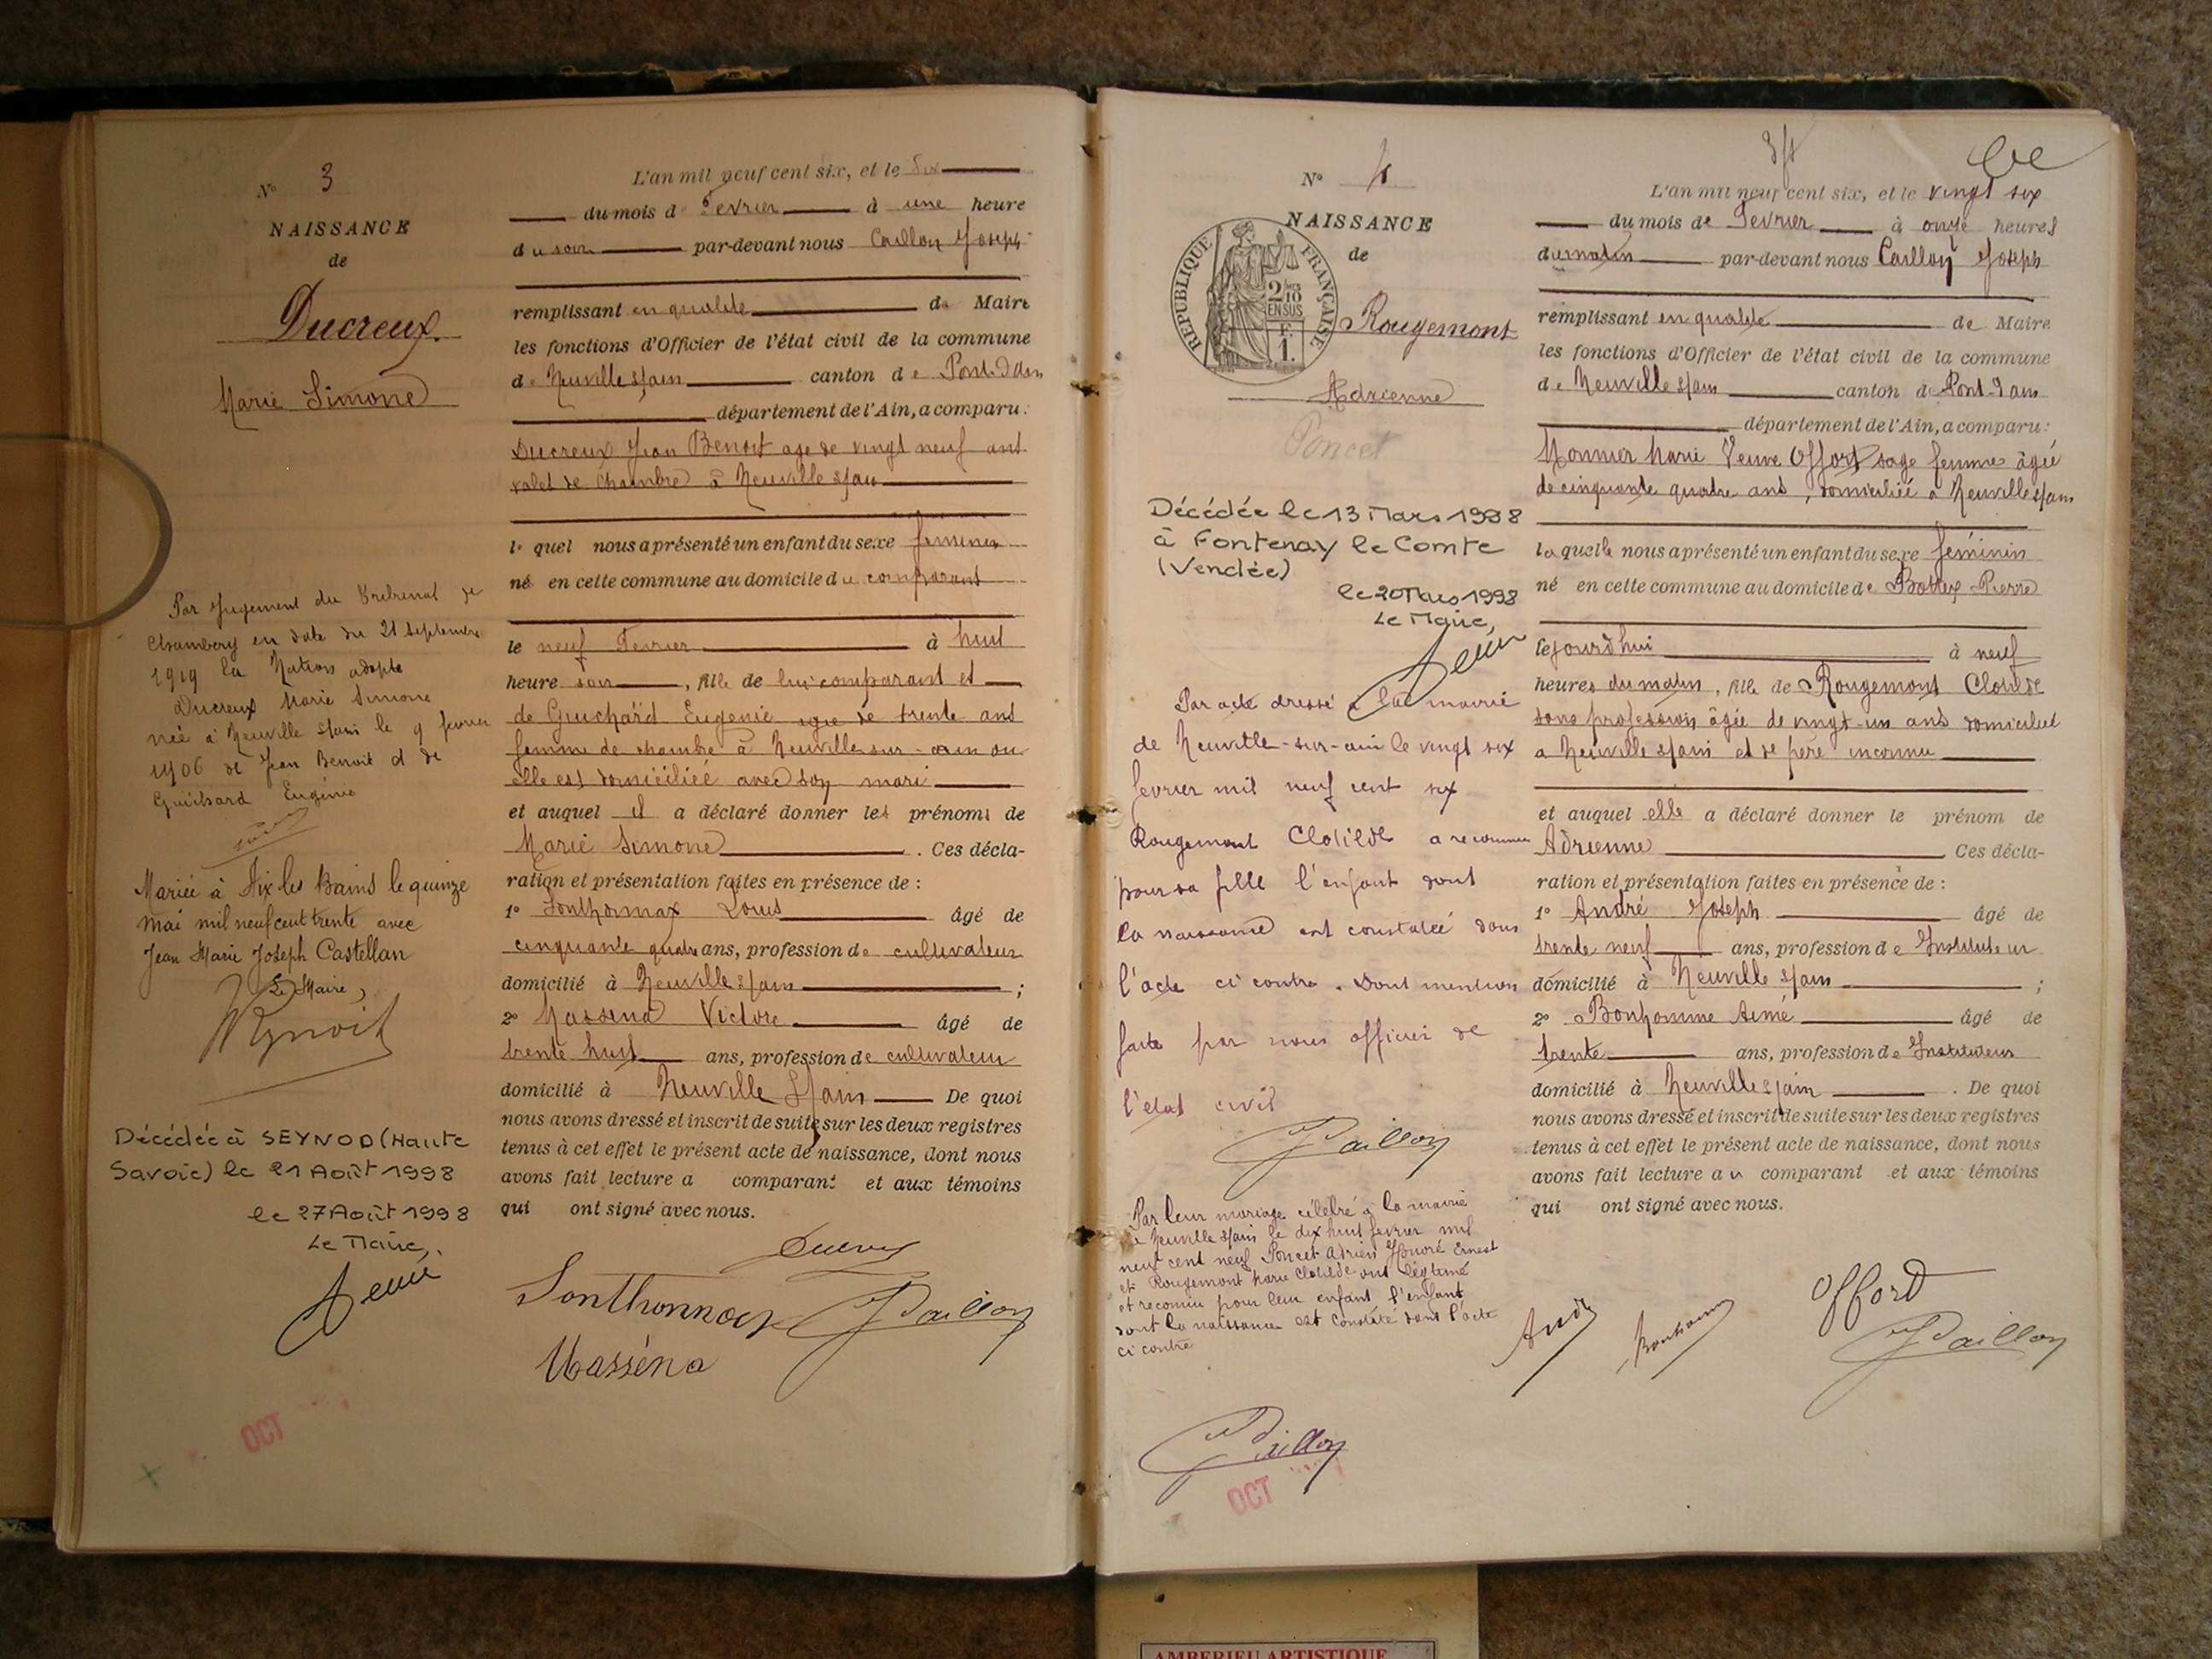 N° 3
NAISSANCE
de
Ducreux
Marie Simone
Par Jugement du Tribunal de
Chambery en date du 21 Septembre
1919 la Nation adopte
Ducreux Marie Simone
née à Neuville s/ain le 9 fevrier
1906 de Jean Benoit et de
Guichard Eugénie
Mariée à Aix les Bains le quinze
mai mil neuf cent trente avec
Jean Marie Joseph Castellan
Le Maire,
Décédée à SEYNOD (Haute
Savoie) le 21 Août 1998
le 27 Août 1998
Le Maire,
L'an mil neuf cent six, et le Dix
du mois de Fevrier à une heure
du soir par-devant nous Caillon Joseph
remplissant en qualité de Maire
les fonctions d'Officier de l'état civil de la commune
de Neuville s/ain canton de Pont d'Ain
département de l'Ain, a comparu :
Ducreux Jean Benoit age de vingt neuf ans
valet de chambre à Neuville s/ain
le quel nous a présenté un enfant du sexe feminin
né en cette commune au domicile du comparant
le neuf Fevrier à huit
heure soir, fille de lui comparant et
de Guichard Eugenie agée de trente ans
femme de chambre à Neuville-sur-ain ou
elle est domiciliée avec son mari
et auquel il a déclaré donner les prénoms de
Marie Simone . Ces décla-
ration et présentation faites en présence de :
1° Sonthonnax Louis âgé de
cinquante quatre ans, profession de cultivateur
domicilié à Neuville s/ain ;
2° Massena Victore âgé de
trente huit ans, profession de cultivateur
domicilié à Neuville S/ain De quoi
nous avons dressé et inscrit de suite sur les deux registres
tenus à cet effet le présent acte de naissance, dont nous
avons fait lecture a comparant et aux témoins
qui ont signé avec nous.
Sonthonnax
Caillon
Masséna
OCT
N° 4
NAISSANCE
de
RÉPUBLIQUE FRANÇAISE
2/10
EN SUS
F.
1.
Rougemont
Adrienne
Poncet
Décédée le 13 Mars 1998
à Fontenay le Comte
(Vendée)
le 20 Mars 1998
Le Maire,
Par acte dressé à la mairie
de Neuville-sur-ain le vingt six
fevrier mil neuf cent six
Rougemont Clotilde a reconnu
pour sa fille l'enfant dont
la naissance est constatée dans
l'acte ci contre. Dont mention
faite par nous officier de
l'etat civil
Caillon
Par leur mariage célébré à la mairie
de Neuville s/ain le dix huit fevrier mil
neuf cent neuf Poncet Adrien Honoré Ernest
et Rougemont Marie Clotilde ont légitimé
et reconnu pour leur enfant l'enfant
dont la naissance est constaté dans l'acte
ci contre
Caillon
OCT
L'an mil neuf cent six, et le vingt six
du mois de Fevrier à onze heures
du matin par-devant nous Caillon Joseph
remplissant en qualité de Maire
les fonctions d'Officier de l'état civil de la commune
de Neuville s/ain canton de Pont d'ain
département de l'Ain, a comparu :
Monnier Marie Veuve Offort sage femme âgée
de cinquante quatre ans, domiciliée à Neuville s/ain
la quelle nous a présenté un enfant du sexe féminin
né en cette commune au domicile de Bottex Pierre
le jourdhui à neuf
heures du matin, fille de Rougemont Clotilde
sans profession âgée de vingt-un ans domiciliée
a Neuville s/ain et de père inconnu
et auquel elle a déclaré donner le prénom de
Adrienne Ces décla-
ration et présentation faites en présence de :
1° André Joseph âgé de
trente neuf ans, profession de Instituteur
domicilié à Neuville s/ain ;
2° Bonhomme Aimé âgé de
trente ans, profession de Instituteur
domicilié à Neuville s/ain . De quoi
nous avons dressé et inscrit de suite sur les deux registres
tenus à cet effet le présent acte de naissance, dont nous
avons fait lecture au comparant et aux témoins
qui ont signé avec nous.
Offord
Caillon
AMBERIEU ARTISTIQUE